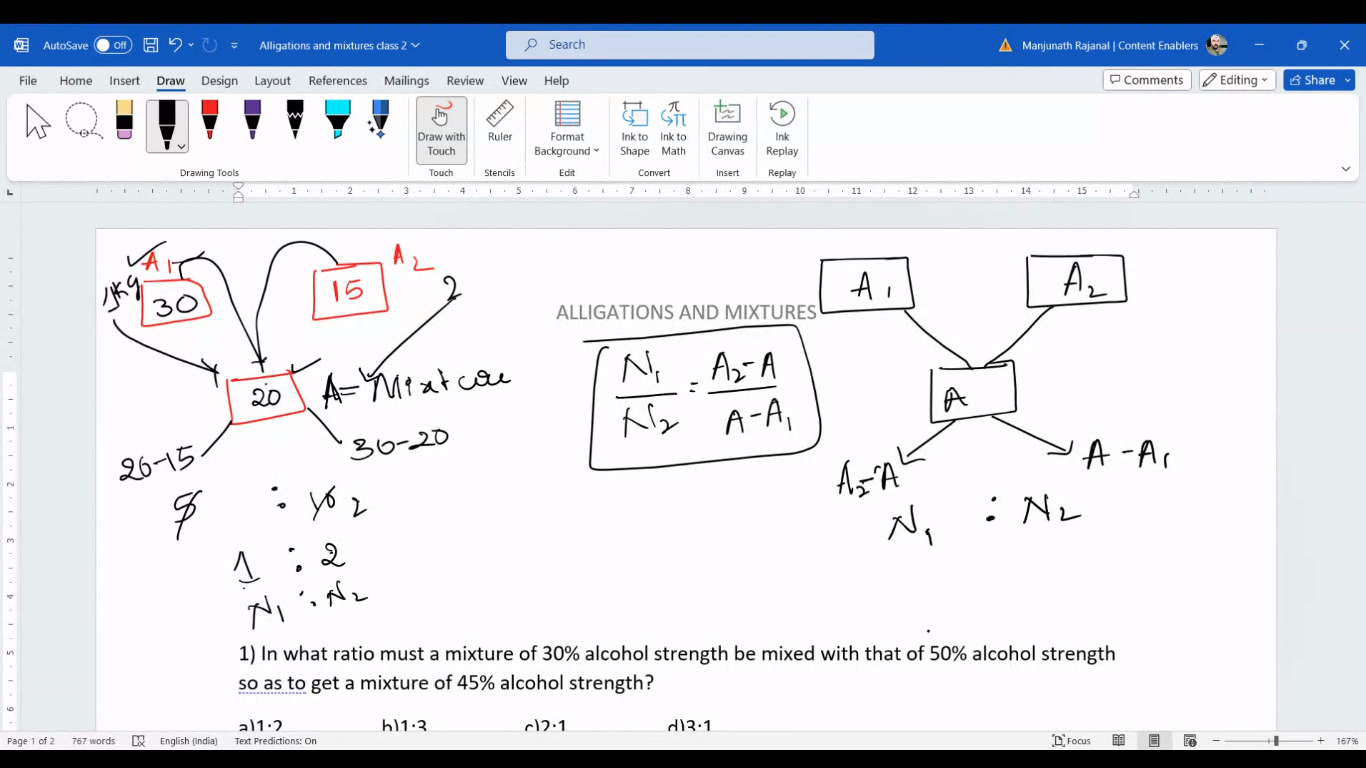 AutoSave Off
Alligations and mixtures class 2
Search
Manjunath Rajanal | Content Enablers
File Home Insert Draw Design Layout References Mailings Review View Help
Comments Editing Share
Draw with Touch
Ruler
Format Background
Ink to Shape
Ink to Math
Drawing Canvas
Ink Replay
Drawing Tools Touch Stencils Edit Convert Insert Replay
1 2 3 4 5 6 7 8 9 10 11 12 13 14 15
A1
A2
1kg
30
15
2
20
A = Mixture
20-15
30-20
5 : 10 2
1 : 2
N1 : N2
ALLIGATIONS AND MIXTURES
N1/N2 = A2-A/A-A1
A1
A2
A
A2-A
A-A1
N1 : N2
1) In what ratio must a mixture of 30% alcohol strength be mixed with that of 50% alcohol strength
so as to get a mixture of 45% alcohol strength?
a)1:2 b)1:3 c)2:1 d)3:1
1 2 3 4 5 6
Page 1 of 2 767 words English (India) Text Predictions: On Focus 167%